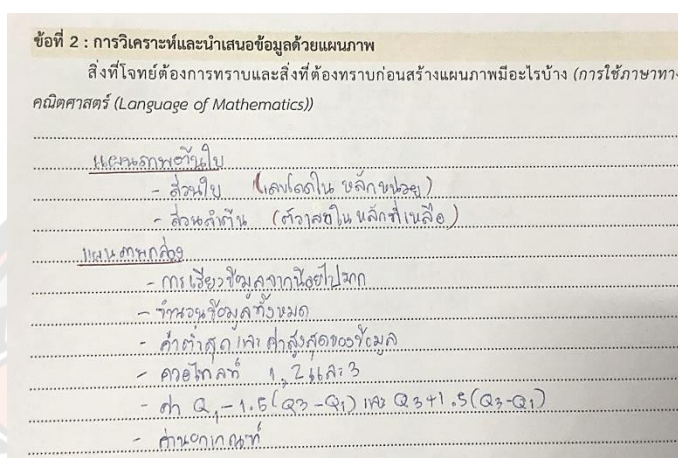 ข้อที่ 2 : การวิเคราะห์และนำเสนอข้อมูลด้วยแผนภาพ
สิ่งที่โจทย์ต้องการทราบและสิ่งที่ต้องทราบก่อนสร้างแผนภาพมีอะไรบ้าง (การใช้ภาษาทาง
คณิตศาสตร์ (Language of Mathematics))
แผนภาพต้นใบ
- ส่วนใบ (เลขโดดใน หลักหน่วย)
- ส่วนลำต้น (ตัวเลขใน หลักที่เหลือ)
แผนภาพกล่อง
- การเรียงข้อมูลจากน้อยไปมาก
- จำนวนข้อมูลทั้งหมด
- ค่าต่ำสุด และ ค่าสูงสุดของข้อมูล
- ควอไทลที่ 1, 2 และ 3
- ค่า Q₁ - 1.5(Q3-Q1) และ Q3+1.5(Q3-Q1)
- ค่านอกเกณฑ์